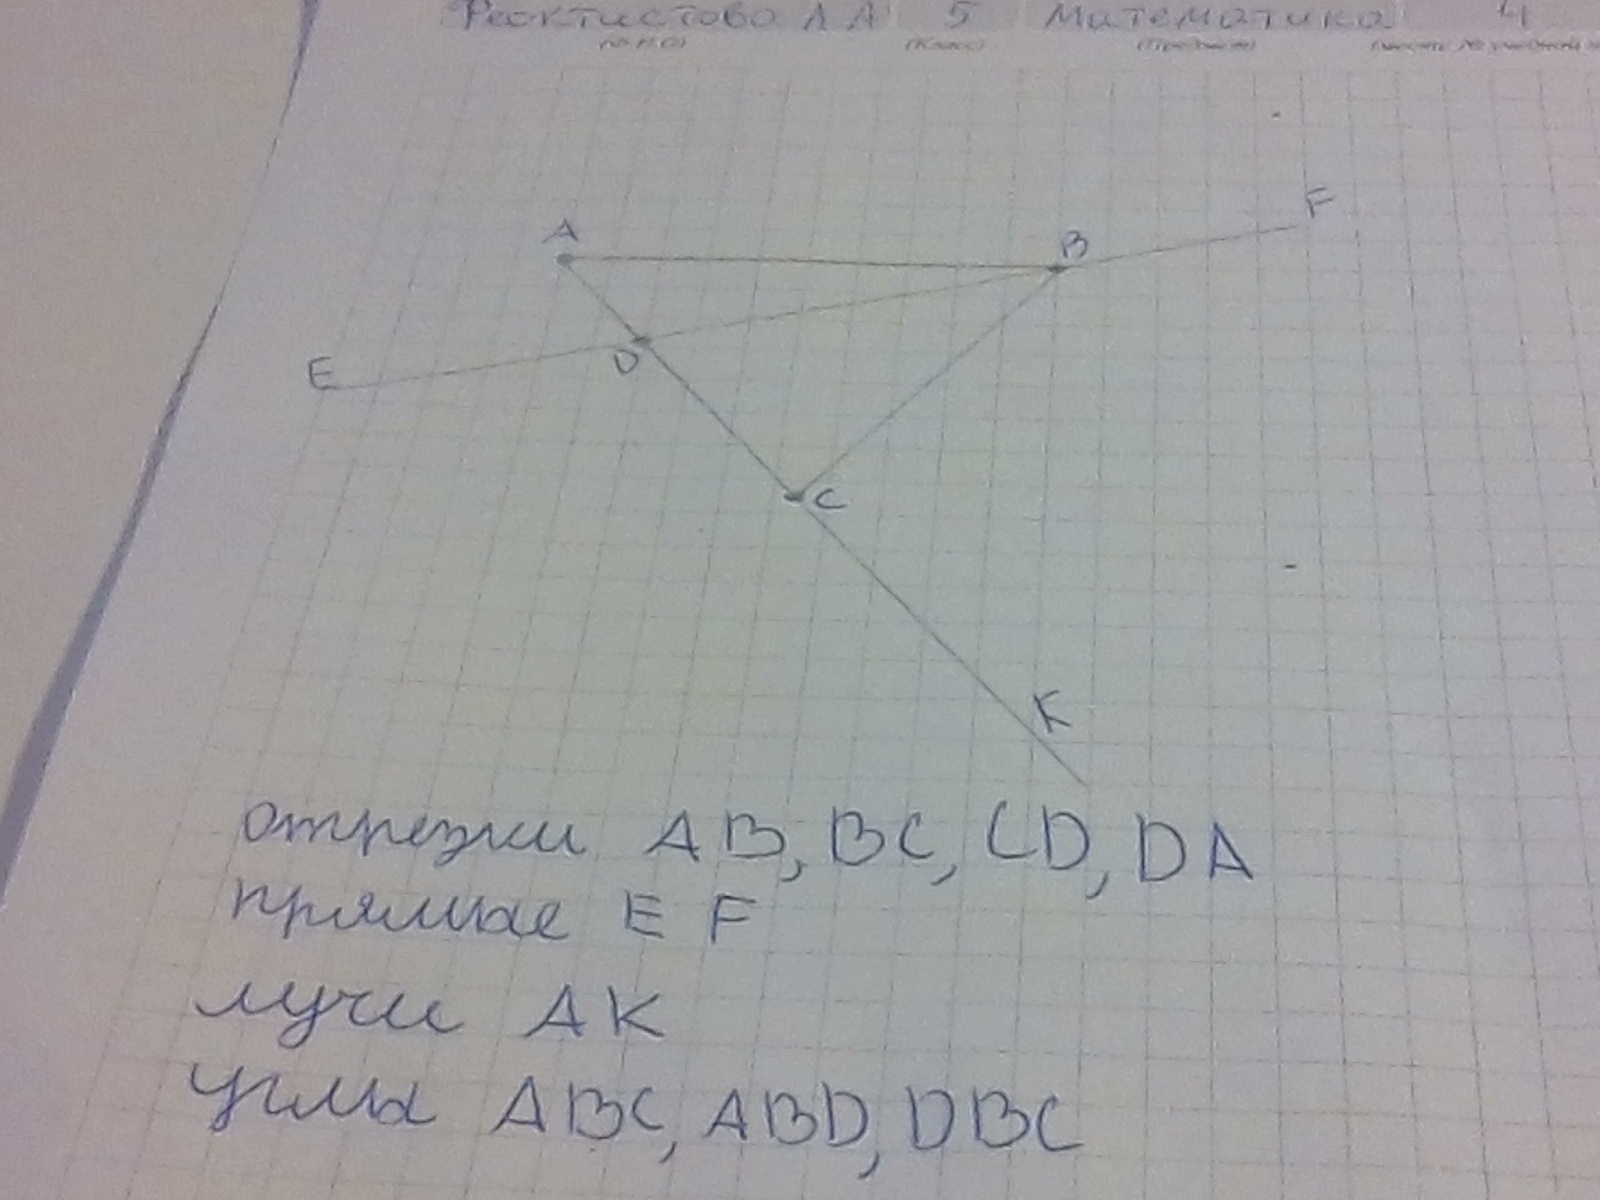 Феоктистова Л А 5 Математика 4
(Ф.И.О) (Класс) (Предмет)
A
B
F
E
D
C
K
отрезки AB, BC, CD, DA
прямые E F
лучи AK
углы ABC, ABD, DBC